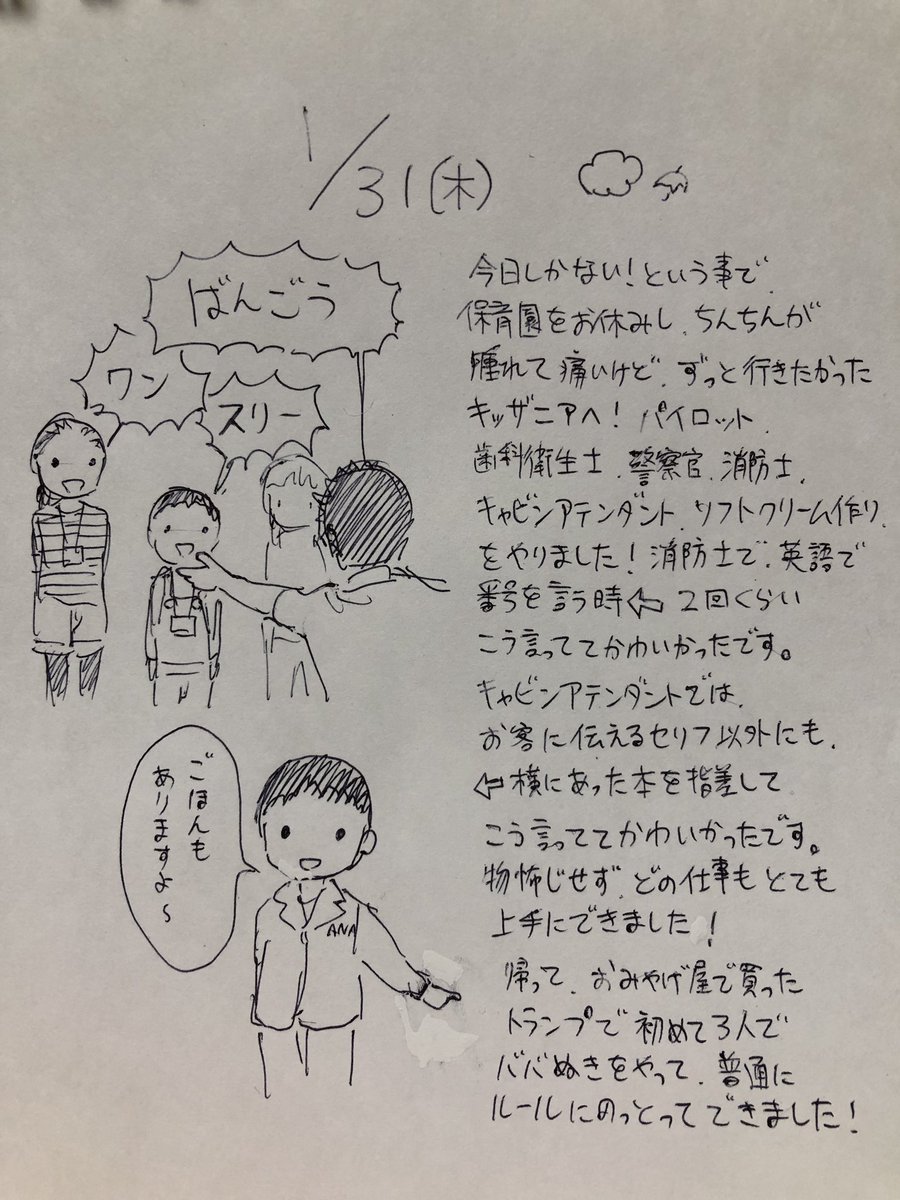 1/31(木)
ばんごう
ワン
スリー
今日しかない!という事で、
保育園をお休みし、ちんちんが
腫れて痛いけど、ずっと行きたかった
キッザニアへ! パイロット、
歯科衛生士、警察官、消防士、
キャビンアテンダント、ソフトクリーム作り、
をやりました!消防士で、英語で
番号を言う時⇦2回くらい
こう言っててかわいかったです。
キャビンアテンダントでは、
お客に伝えるセリフ以外にも、
⇦横にあった本を指差して
こう言っててかわいかったです。
物怖じせず、どの仕事もとても
上手にできました!
帰って、おみやげ屋で買った
トランプで初めて3人で
ババぬきをやって、普通に
ルールにのっとってできました!
ごほんも
ありますよ〜
ANA